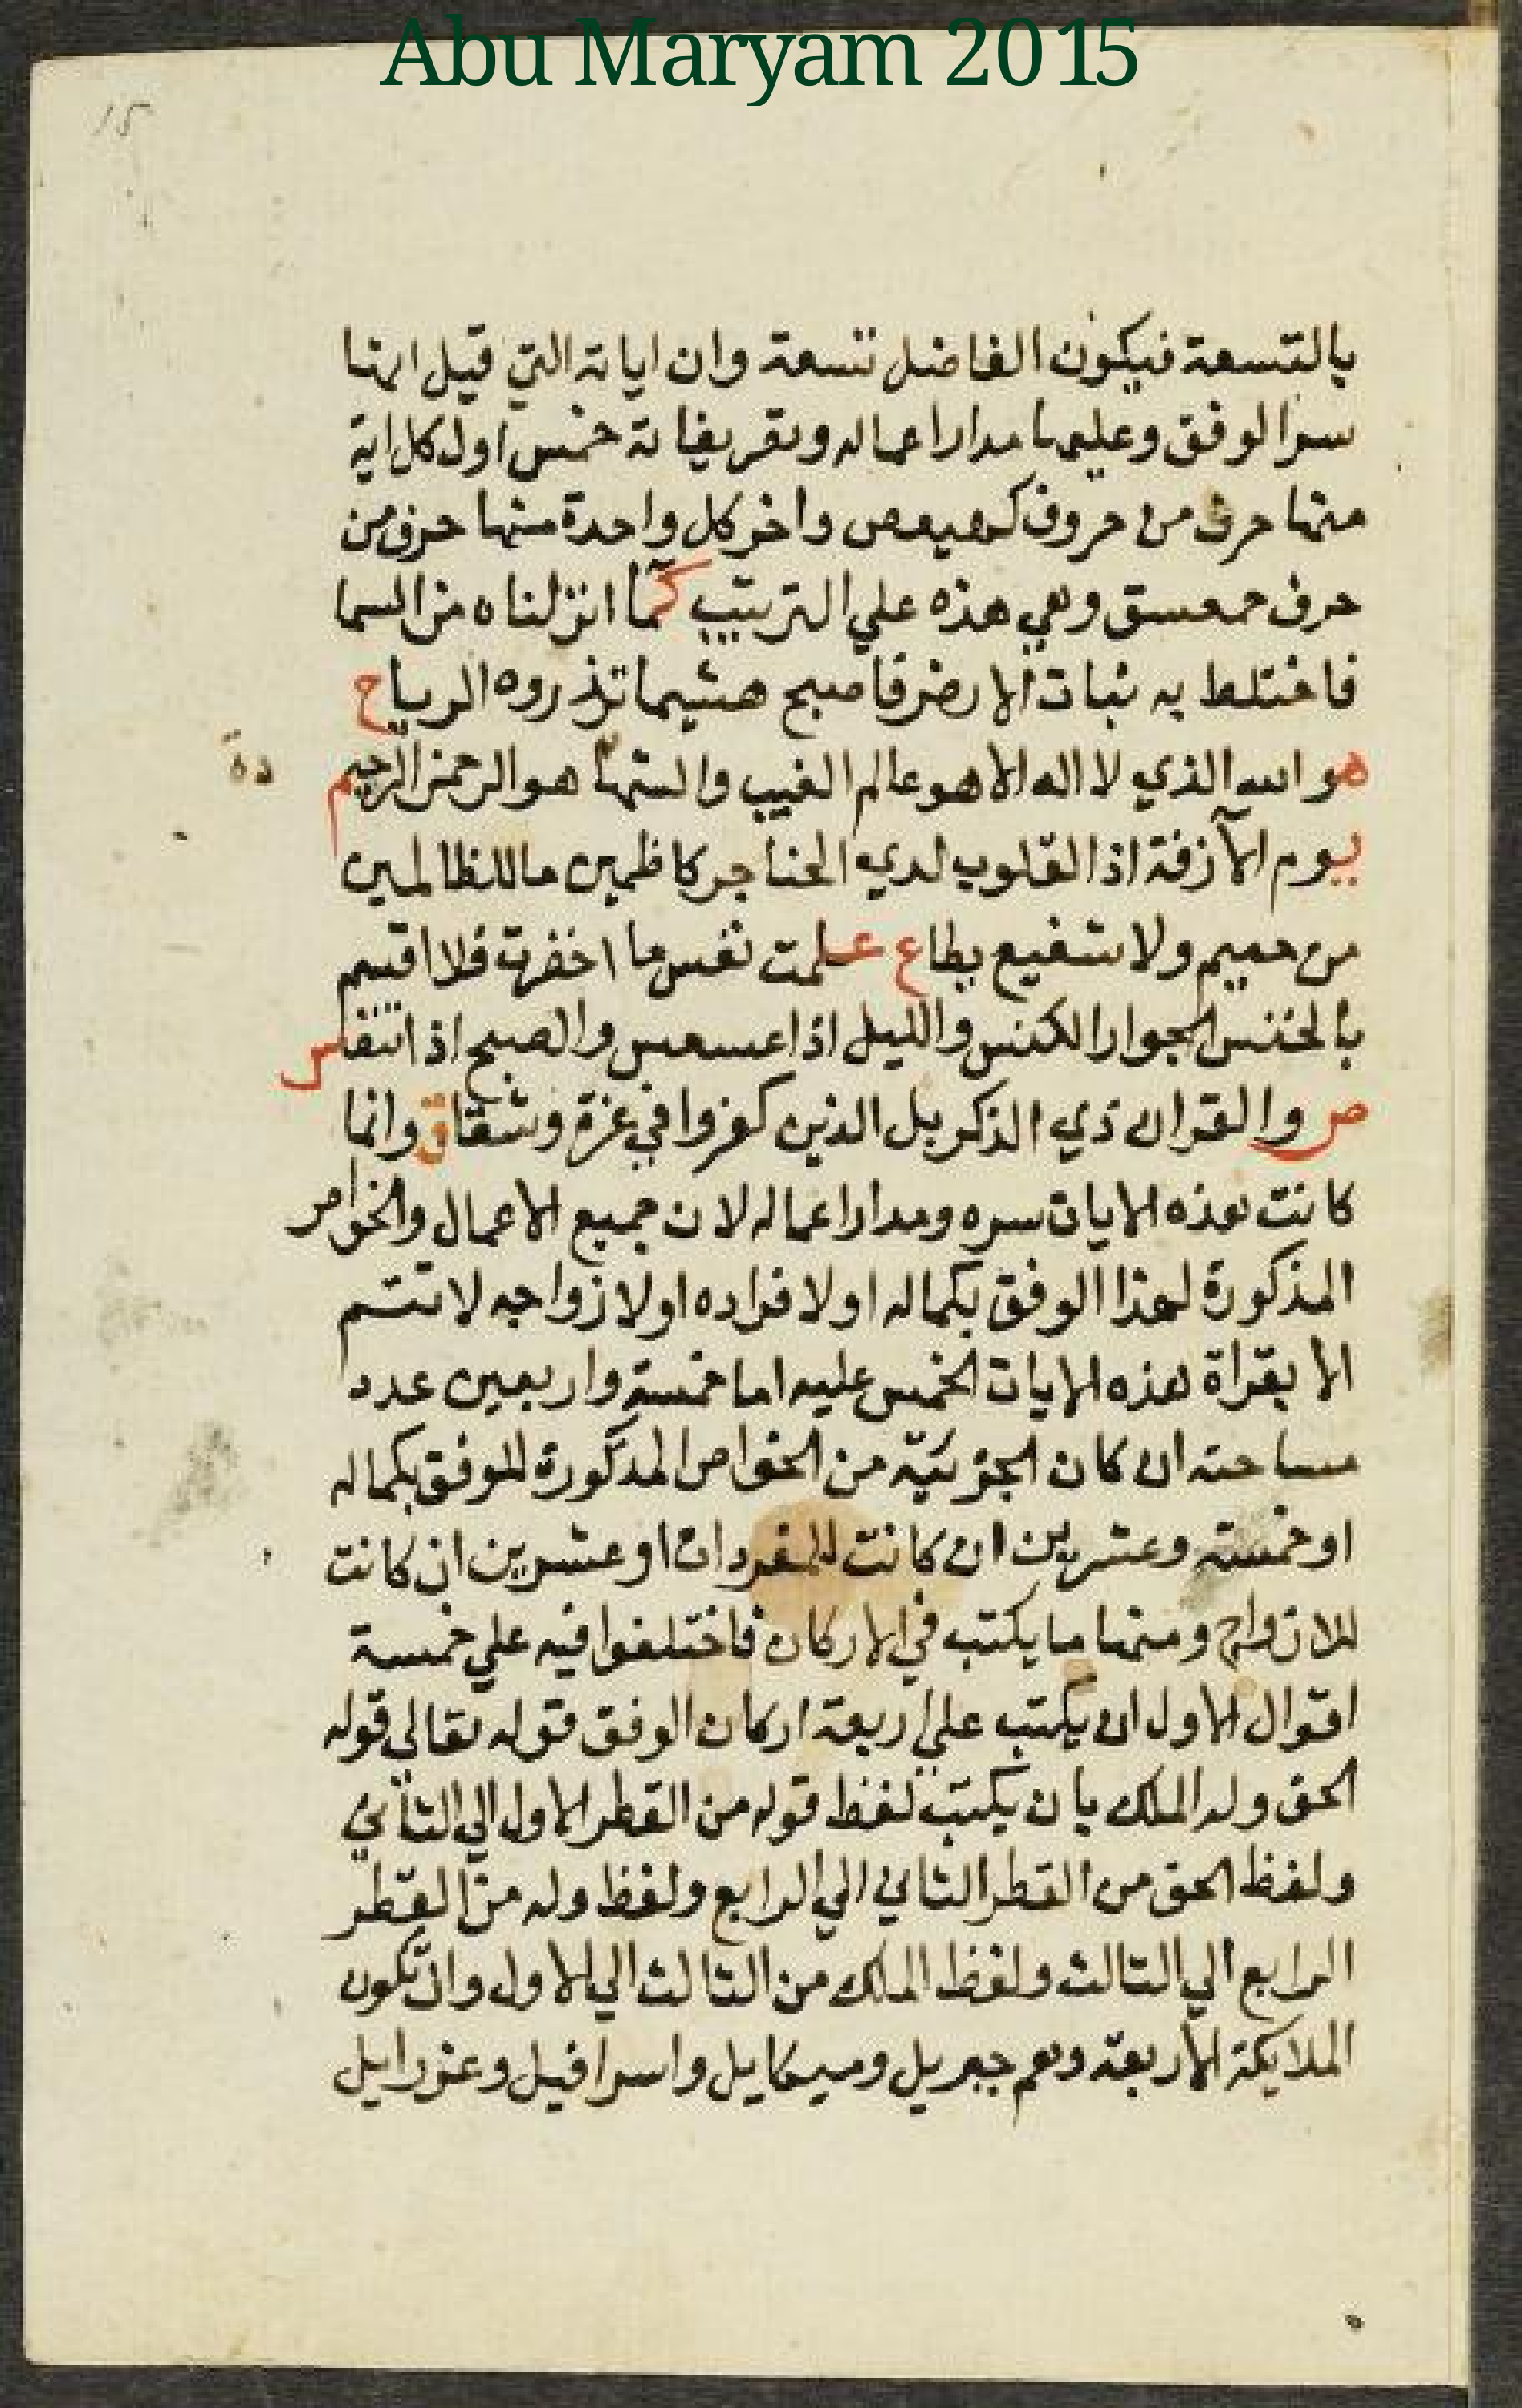 Abu Maryam 2015
15
بالتسعة فيكون الفاضل تسعة وان اياته التي قيل انها
سر الوفق وعليها مدار اعماله وتصريفاته خمس اول كل اية
منها حرف من حروف كهيعص واخر كل واحدة منها حرف من
حرف حمعسق وهي هذه علي الترتيب كما انزلناه من السما
فاختلط به نبات الارض فاصبح هشيما تذروه الرياح
هو الله الذي لا اله الا هو عالم الغيب والشها هو الرحمن الرحيم
دة
يوم الآزفة اذ القلوب لدي الحناجر كاظمين ما للظالمين
من حميم ولا شفيع يطاع علمت نفس ما احضرت فلا اقسم
بالخنس الجوار الكنس والليل اذا عسعس والصبح اذا تنفس
ص والقران ذي الذكر بل الذين كفروا في عزة وشقاق وانما
كانت هذه الايات سره ومدار اعماله لان جميع الاعمال والخواص
المذكورة لهذا الوفق بكماله او لافراده او لازواجه لا تتم
الا بقراة هذه الايات الخمس عليه اما خمسة واربعين عدد
مساحته ان كان الجزئية من الخواص المذكورة للوفق بكماله
او خمسة وعشرين ان كانت للمفردات او عشرين ان كانت
للازواج ومنها ما يكتب في الاركان فاختلفوا فيه علي خمسة
اقوال الاول ان يكتب علي اربعة اركان الوفق قوله تعالي قوله
الحق وله الملك بان يكتب لفظ قوله من القطر الاول الي الثاني
ولفظ الحق من القطر الثاني الي الرابع ولفظ وله من القطر
الرابع الي الثالث ولفظ الملك من الثالث الي الاول وان تكون
الملايكة الاربعة وهم جبريل وميكايل واسرافيل وعزرايل